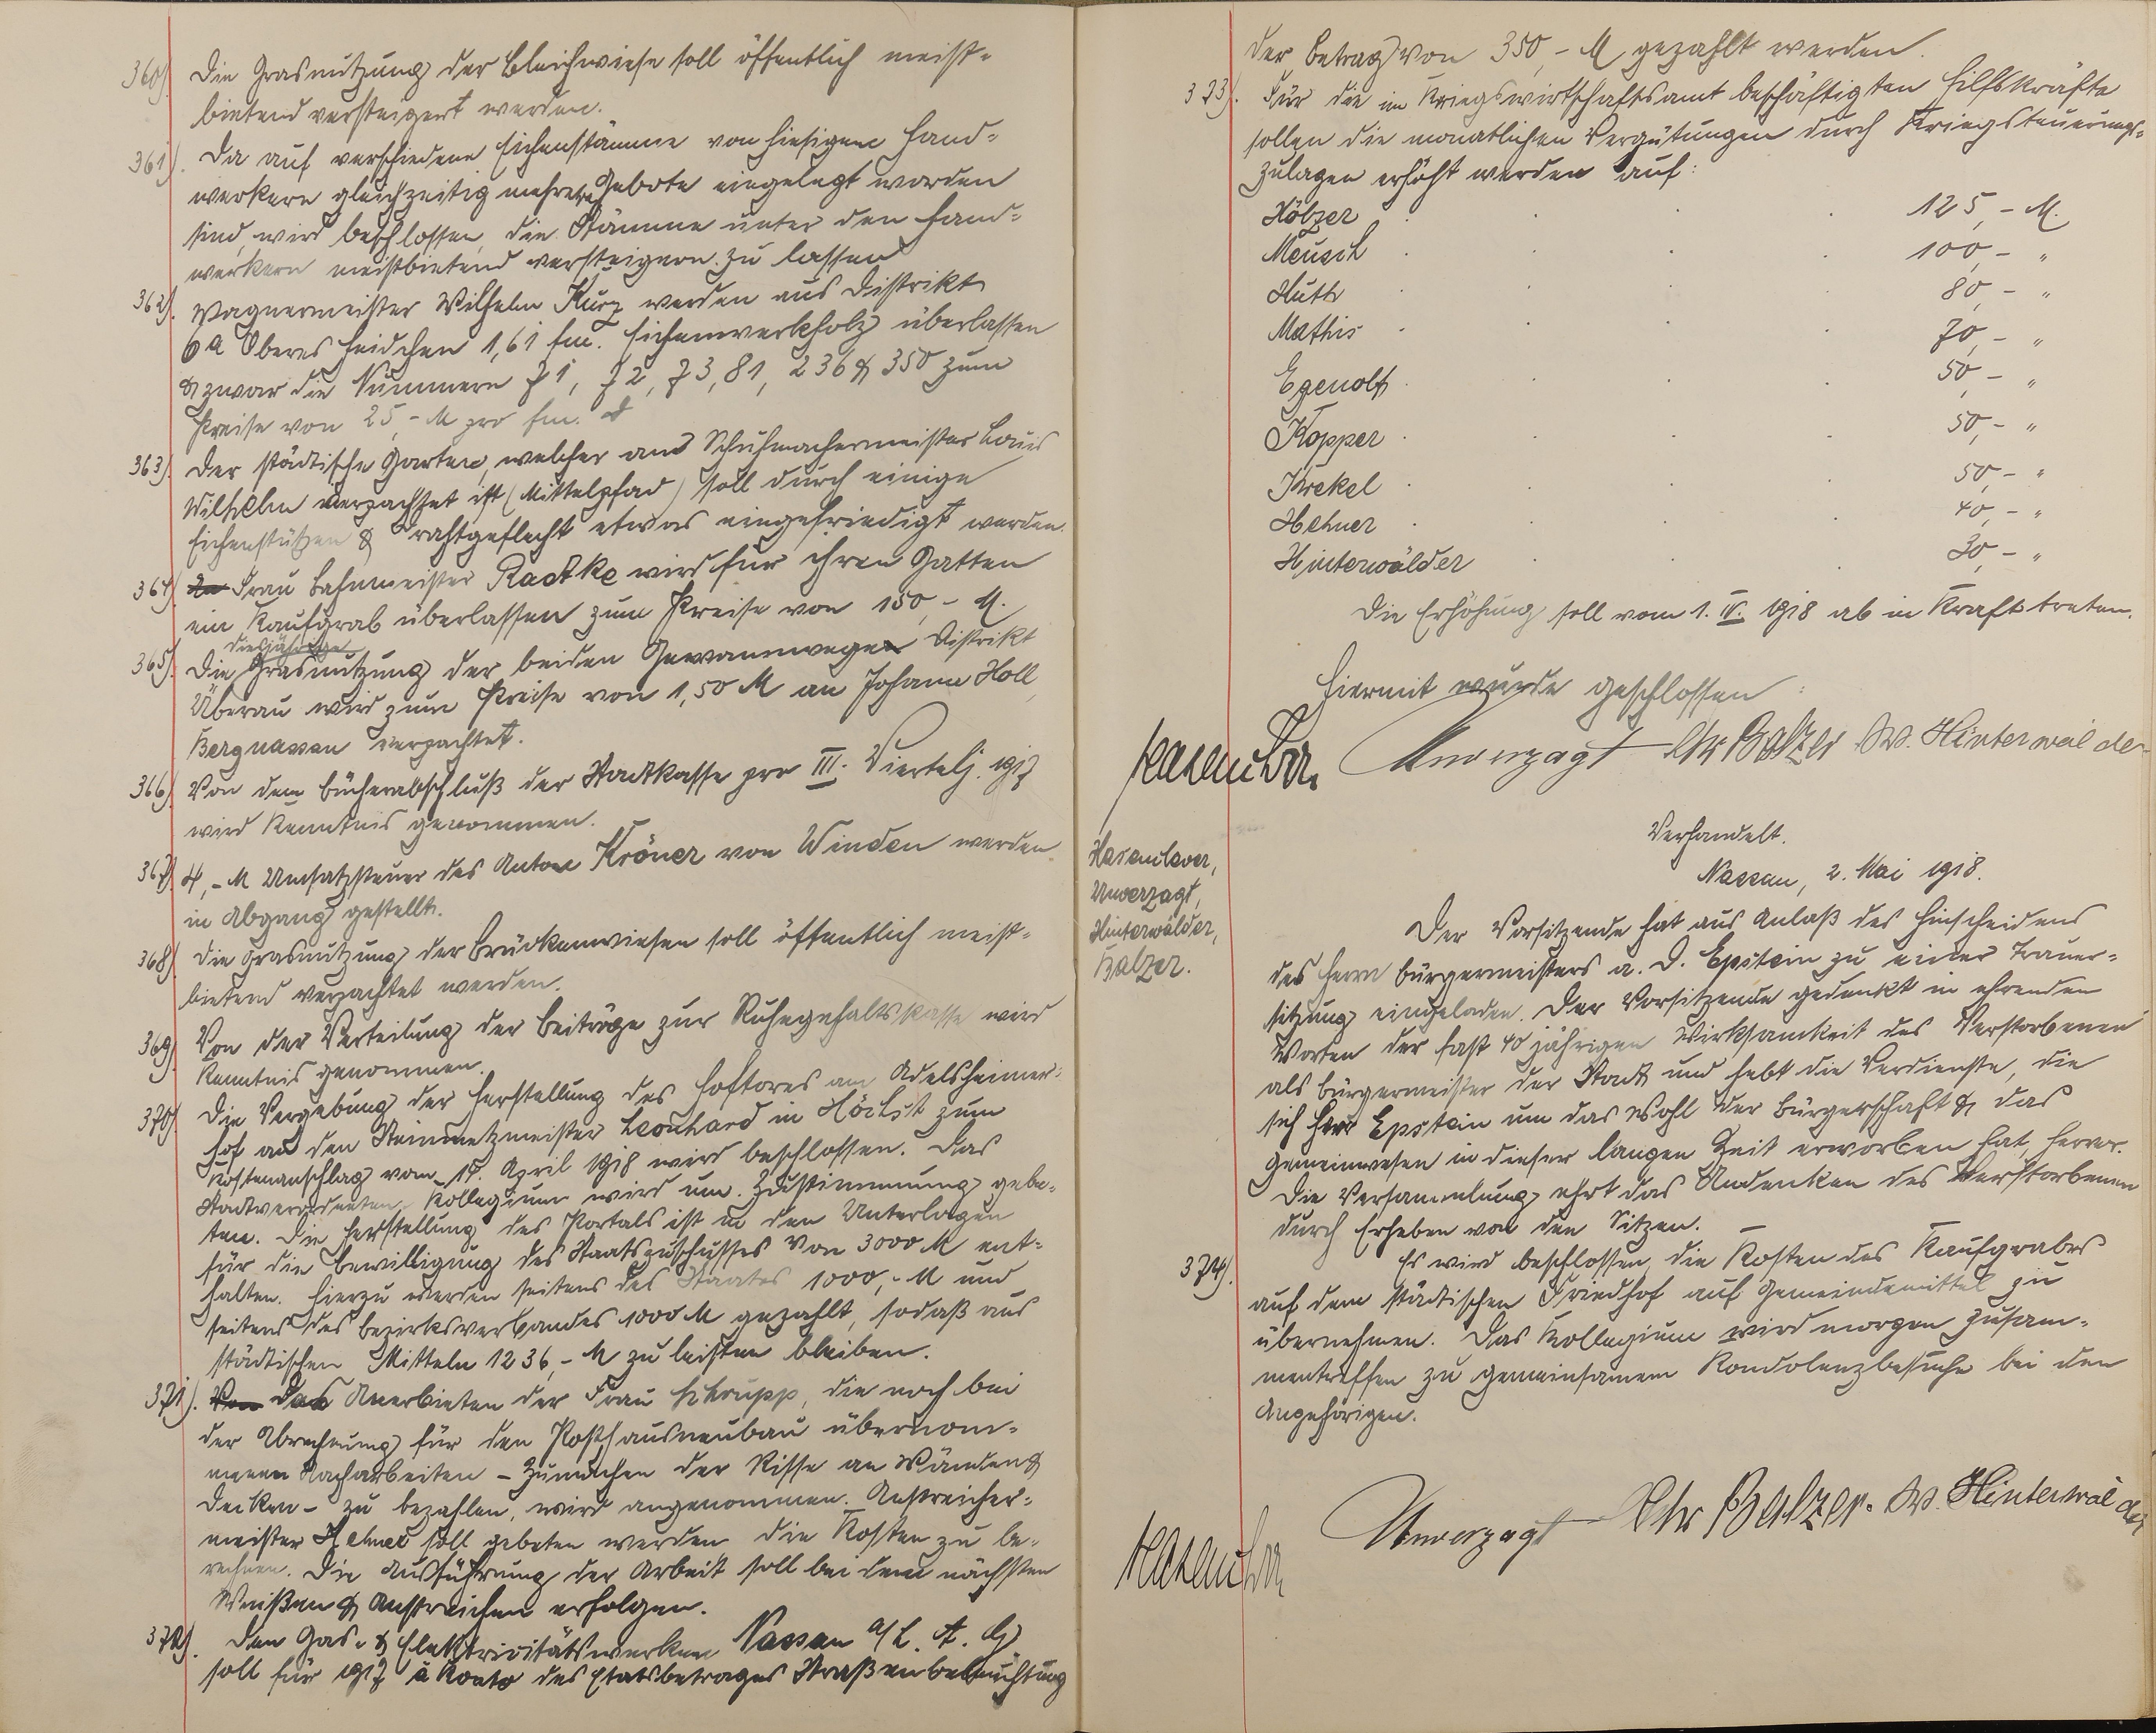 360). Die Grasnutzung der Bleichwiese soll öffentlich meist-
bietend versteigert werden.
361). Da auf verschiedene Eichenstämme von hiesigen Hand-
werkern gleichzeitig mehrere Gebote eingelegt worden
sind, wird beschlossen, die Stämme unter den Hand-
werkern meistbietend versteigern zu lassen
362). Wagnermeister Wilhelm Kurz werden aus Distrikt
6a Oberes Heidchen 1,61 fm. Eichenwerkholz überlassen
& zwar die Nummern 71, 72, 73, 81, 236 & 350 zum
Preise von 25,- M pro fm.
363). Der städtische Garten, welcher an Schuhmachermeister Louis
Wilhelm verpachtet ist (Mittelpfad) soll durch einige
Eichenstützen & Drahtgeflecht etwas eingefriedigt werden.
364) Frau Bahnmeister Radtke wird für ihren Gatten
ein Kaufgrab überlassen zum Preise von 150,- M.
diesjährige
365). Die Grasnutzung der beiden Gewannwege Distrikt
Überau wird zum Preise von 1,50 M an Johann Holl,
Bergnassau verpachtet.
366) Von dem Bücherabschluß der Stadtkasse pro III. Viertelj. 1917
wird Kenntnis genommen.
367) 4,- M Umsatzsteuer des Anton Kröner von Winden werden
in Abgang gestellt.
368) Die Grasnutzung der Brückenwiesen soll öffentlich meist-
bietend verpachtet werden.
369) Von der Verteilung der Beiträge zur Ruhegehaltskasse wird
Kenntnis genommen.
370) Die Vergebung der Herstellung des Hoftores am Adelsheimer-
hof an den Steinmetzmeister Leonhard in Höchst zum
Kostenanschlag vom 17. April 1918 wird beschlossen. Das
Stadtverordneten-Kollegium wird um Zustimmung gebe-
ten. Die Herstellung des Portals ist in den Unterlagen
für die Bewilligung des Staatszuschusses von 3000 M ent-
halten. Hierzu werden seitens des Staates 1000,- M und
seitens des Bezirksverbandes 1000 M gezahlt, sodaß aus
städtischen Mitteln 1236,- M zu leisten bleiben.
371). Von Das Anerbieten der Frau Schrupp, die noch bei
der Abrechnung für den Posthausneubau übernom-
menen Nacharbeiten - Zumachen der Risse an Wänden &
Decken - zu bezahlen, wird angenommen. Anstreicher-
meister Hehner soll gebeten werden die Kosten zu be-
rechnen. Die Ausführung der Arbeit soll bei dem nächsten
Weißen & Anstreichen erfolgen.
372). Den Gas- & Elektricitätswerken Nassau a/L. A. G.
soll für 1917 à Konto des Etatsbetrages Straßenbeleuchtung
der Betrag von 350,- M gezahlt werden.
373). Für die im Kriegswirtschaftsamt beschäftigten Hilfskräfte
sollen die monatlichen Vergütungen durch Kriegsteuerungs-
zulagen erhöht werden auf:
Hölzer . . . 125,- M.
Meusch . . . 100,- "
Huth . . . 80,- "
Mathis . . . 70,- "
Egenolf . . . 50,- "
Kopper . . . 50,- "
Krekel . . . 50,- "
Hehner . . . 40,- "
Hinterwälder . . . 30,- "
Die Erhöhung soll vom 1. IV. 1918 ab in Kraft treten.
Hiermit wurde geschlossen:
Hasenclever Unverzagt Chr Balzer W. Hinterwälder
Verhandelt.
Nassau, 2. Mai 1918.
Hasenclever,
Unverzagt,
Hinterwälder,
Balzer.
Der Vorsitzende hat aus Anlaß des Hinscheidens
des Herrn Bürgermeisters a. D. Epstein zu einer Trauer-
sitzung eingeladen. Der Vorsitzende gedenkt in ehrenden
Worten der fast 40 jährigen Wirksamkeit des Verstorbenen
als Bürgermeister der Stadt und hebt die Verdienste, die
sich Herr Epstein um das Wohl der Bürgerschaft & das
Gemeinwesen in dieser langen Zeit erworben hat, hervor.
Die Versammlung ehrt das Andenken des Verstorbenen
durch Erheben von den Sitzen.
374). Es wird beschlossen, die Kosten des Kaufgrabes
auf dem städtischen Friedhof auf Gemeindemittel zu
übernehmen. Das Kollegium wird morgen zusam-
mentreffen zu gemeinsamem Kondolenzbesuche bei den
Angehörigen.
Hasenclever Unverzagt Chr Balzer. W. Hinterwälder